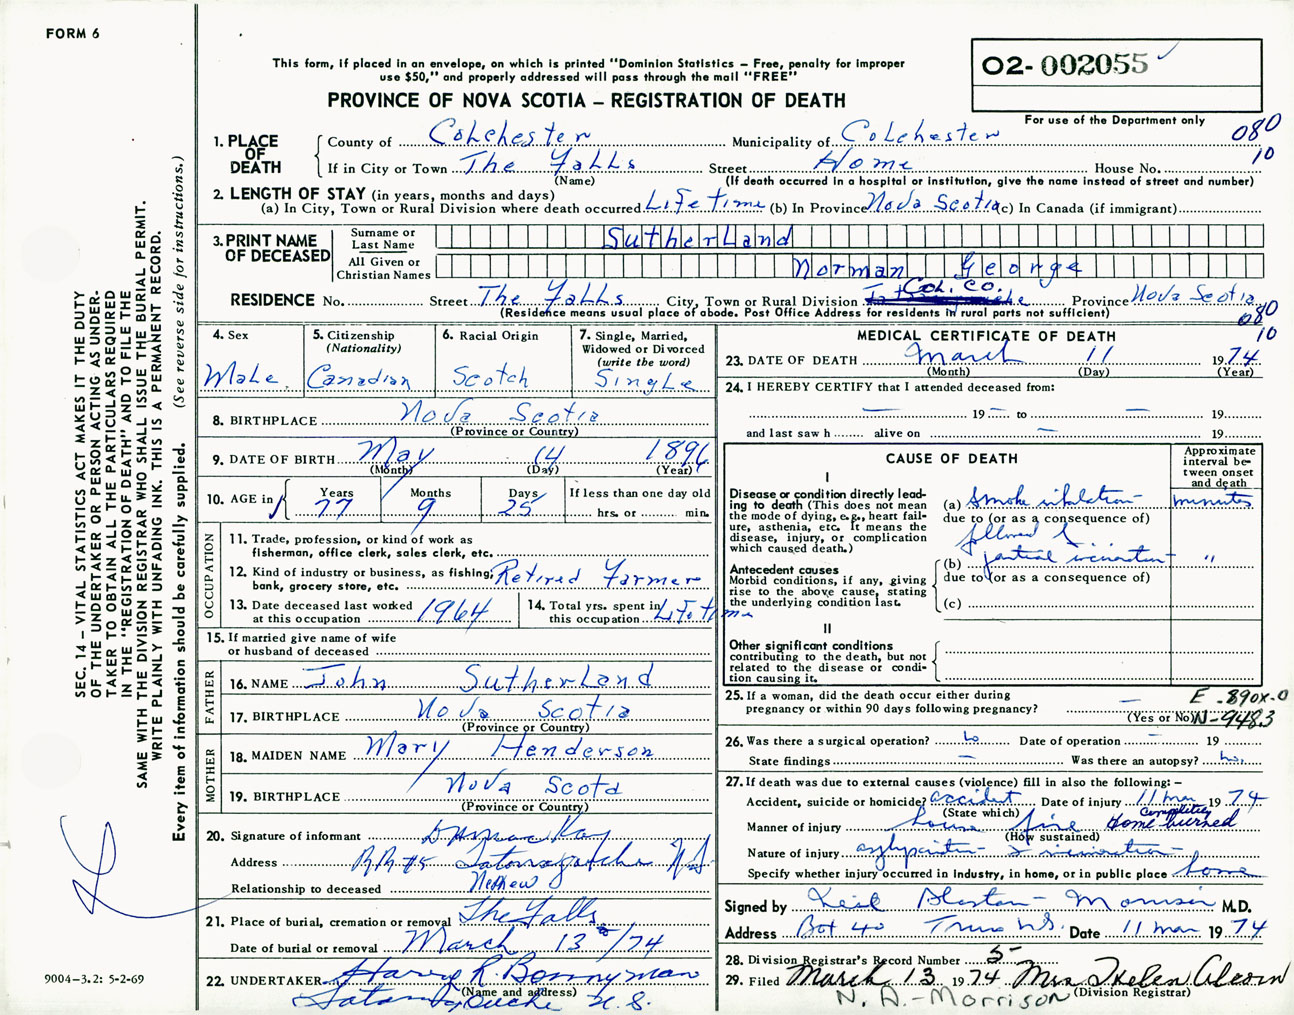 FORM 6
This form, if placed in an envelope, on which is printed "Dominion Statistics – Free, penalty for improper
use $50," and properly addressed will pass through the mail "FREE"
PROVINCE OF NOVA SCOTIA – REGISTRATION OF DEATH
02- 002055
For use of the Department only
080
10
1. PLACE OF DEATH
County of Colchester Municipality of Colchester
If in City or Town The Falls Street Home House No.
(Name) (If death occurred in a hospital or institution, give the name instead of street and number)
2. LENGTH OF STAY (in years, months and days)
(a) In City, Town or Rural Division where death occurred Lifetime (b) In Province Nova Scotia (c) In Canada (if immigrant)
3. PRINT NAME OF DECEASED
Surname or Last Name Sutherland
All Given or Christian Names Norman George
Col. Co.
RESIDENCE No. Street The Falls City, Town or Rural Division Province Nova Scotia
(Residence means usual place of abode. Post Office Address for residents in rural parts not sufficient)
080
10
4. Sex Male
5. Citizenship (Nationality) Canadian
6. Racial Origin Scotch
7. Single, Married, Widowed or Divorced (write the word) Single
8. BIRTHPLACE Nova Scotia
(Province or Country)
9. DATE OF BIRTH May 14 1896
(Month) (Day) (Year)
10. AGE in Years 77 Months 9 Days 25 If less than one day old
hrs. or min.
OCCUPATION
11. Trade, profession, or kind of work as
fisherman, office clerk, sales clerk, etc.
12. Kind of industry or business, as fishing, Retired Farmer
bank, grocery store, etc.
13. Date deceased last worked at this occupation 1964
14. Total yrs. spent in this occupation Lifetime
15. If married give name of wife
or husband of deceased
FATHER
16. NAME John Sutherland
17. BIRTHPLACE Nova Scotia
(Province or Country)
MOTHER
18. MAIDEN NAME Mary Henderson
19. BIRTHPLACE Nova Scotd
(Province or Country)
20. Signature of informant
Address R.R.#5 Tatamagouche N.S.
Relationship to deceased Nephew
21. Place of burial, cremation or removal The Falls
Date of burial or removal March 13 /74
22. UNDERTAKER Harry R. Bonnyman
(Name and address)
Tatamagouche N.S.
MEDICAL CERTIFICATE OF DEATH
23. DATE OF DEATH March 11 1974
(Month) (Day) (Year)
24. I HEREBY CERTIFY that I attended deceased from:
— 19 — to — 19
and last saw h alive on — 19
CAUSE OF DEATH
Approximate interval between onset and death
I
Disease or condition directly lead-
ing to death (This does not mean
the mode of dying, e.g., heart fail-
ure, asthenia, etc. It means the
disease, injury, or complication
which caused death.)
(a) smoke inhalation minutes
due to (or as a consequence of)
followed by
(b) partial incineration "
due to (or as a consequence of)
(c)
Antecedent causes
Morbid conditions, if any, giving
rise to the above cause, stating
the underlying condition last.
II
Other significant conditions
contributing to the death, but not
related to the disease or condi-
tion causing it.
25. If a woman, did the death occur either during
pregnancy or within 90 days following pregnancy? —
(Yes or No)
E-890X-0
N-9483
26. Was there a surgical operation? no Date of operation — 19
State findings — Was there an autopsy? no
27. If death was due to external causes (violence) fill in also the following: –
Accident, suicide or homicide? accident Date of injury 11 Mar 1974
(State which)
Manner of injury house fire Home completely burned
(How sustained)
Nature of injury incineration
Specify whether injury occurred in industry, in home, or in public place home
Signed by M.D.
Address Box 40 Truro N.S. Date 11 Mar 1974
28. Division Registrar's Record Number 5
29. Filed March 13 1974 Mrs
(Division Registrar)
N. A.-Morrison
SEC. 14 – VITAL STATISTICS ACT MAKES IT THE DUTY
OF THE UNDERTAKER OR PERSON ACTING AS UNDER-
TAKER TO OBTAIN ALL THE PARTICULARS REQUIRED
IN THE "REGISTRATION OF DEATH" AND TO FILE THE
SAME WITH THE DIVISION REGISTRAR WHO SHALL ISSUE THE BURIAL PERMIT.
WRITE PLAINLY WITH UNFADING INK. THIS IS A PERMANENT RECORD.
Every item of information should be carefully supplied. (See reverse side for instructions.)
9004–3.2: 5-2-69